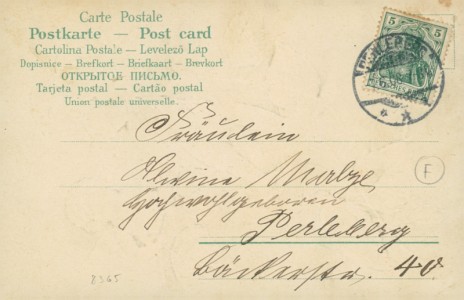 Carte Postale
Postkarte — Post card
Cartolina Postale — Levelező Lap
Dopisnice — Brefkort — Briefkaart — Brevkort
ОТКРЫТОЕ ПИСЬМО.
Tarjeta postal — Cartão postal
Union postale universelle.
5 5
Fräulein
Alwine
Hochwohlgeboren
Perleberg
Bäckerstr. 40.
F
8365